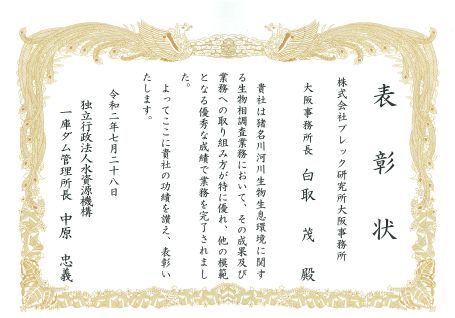 表彰状
株式会社プレック研究所大阪事務所
大阪事務所長 白取 茂 殿
貴社は猪名川河川生物生息環境に関す
る生物相調査業務において、その成果及び
業務への取り組み方が特に優れ、他の模範
となる優秀な成績で業務を完了されまし
た。
よってここに貴社の功績を讃え、表彰い
たします。
令和二年七月二十八日
独立行政法人水資源機構
一庫ダム管理所長 中原 忠義